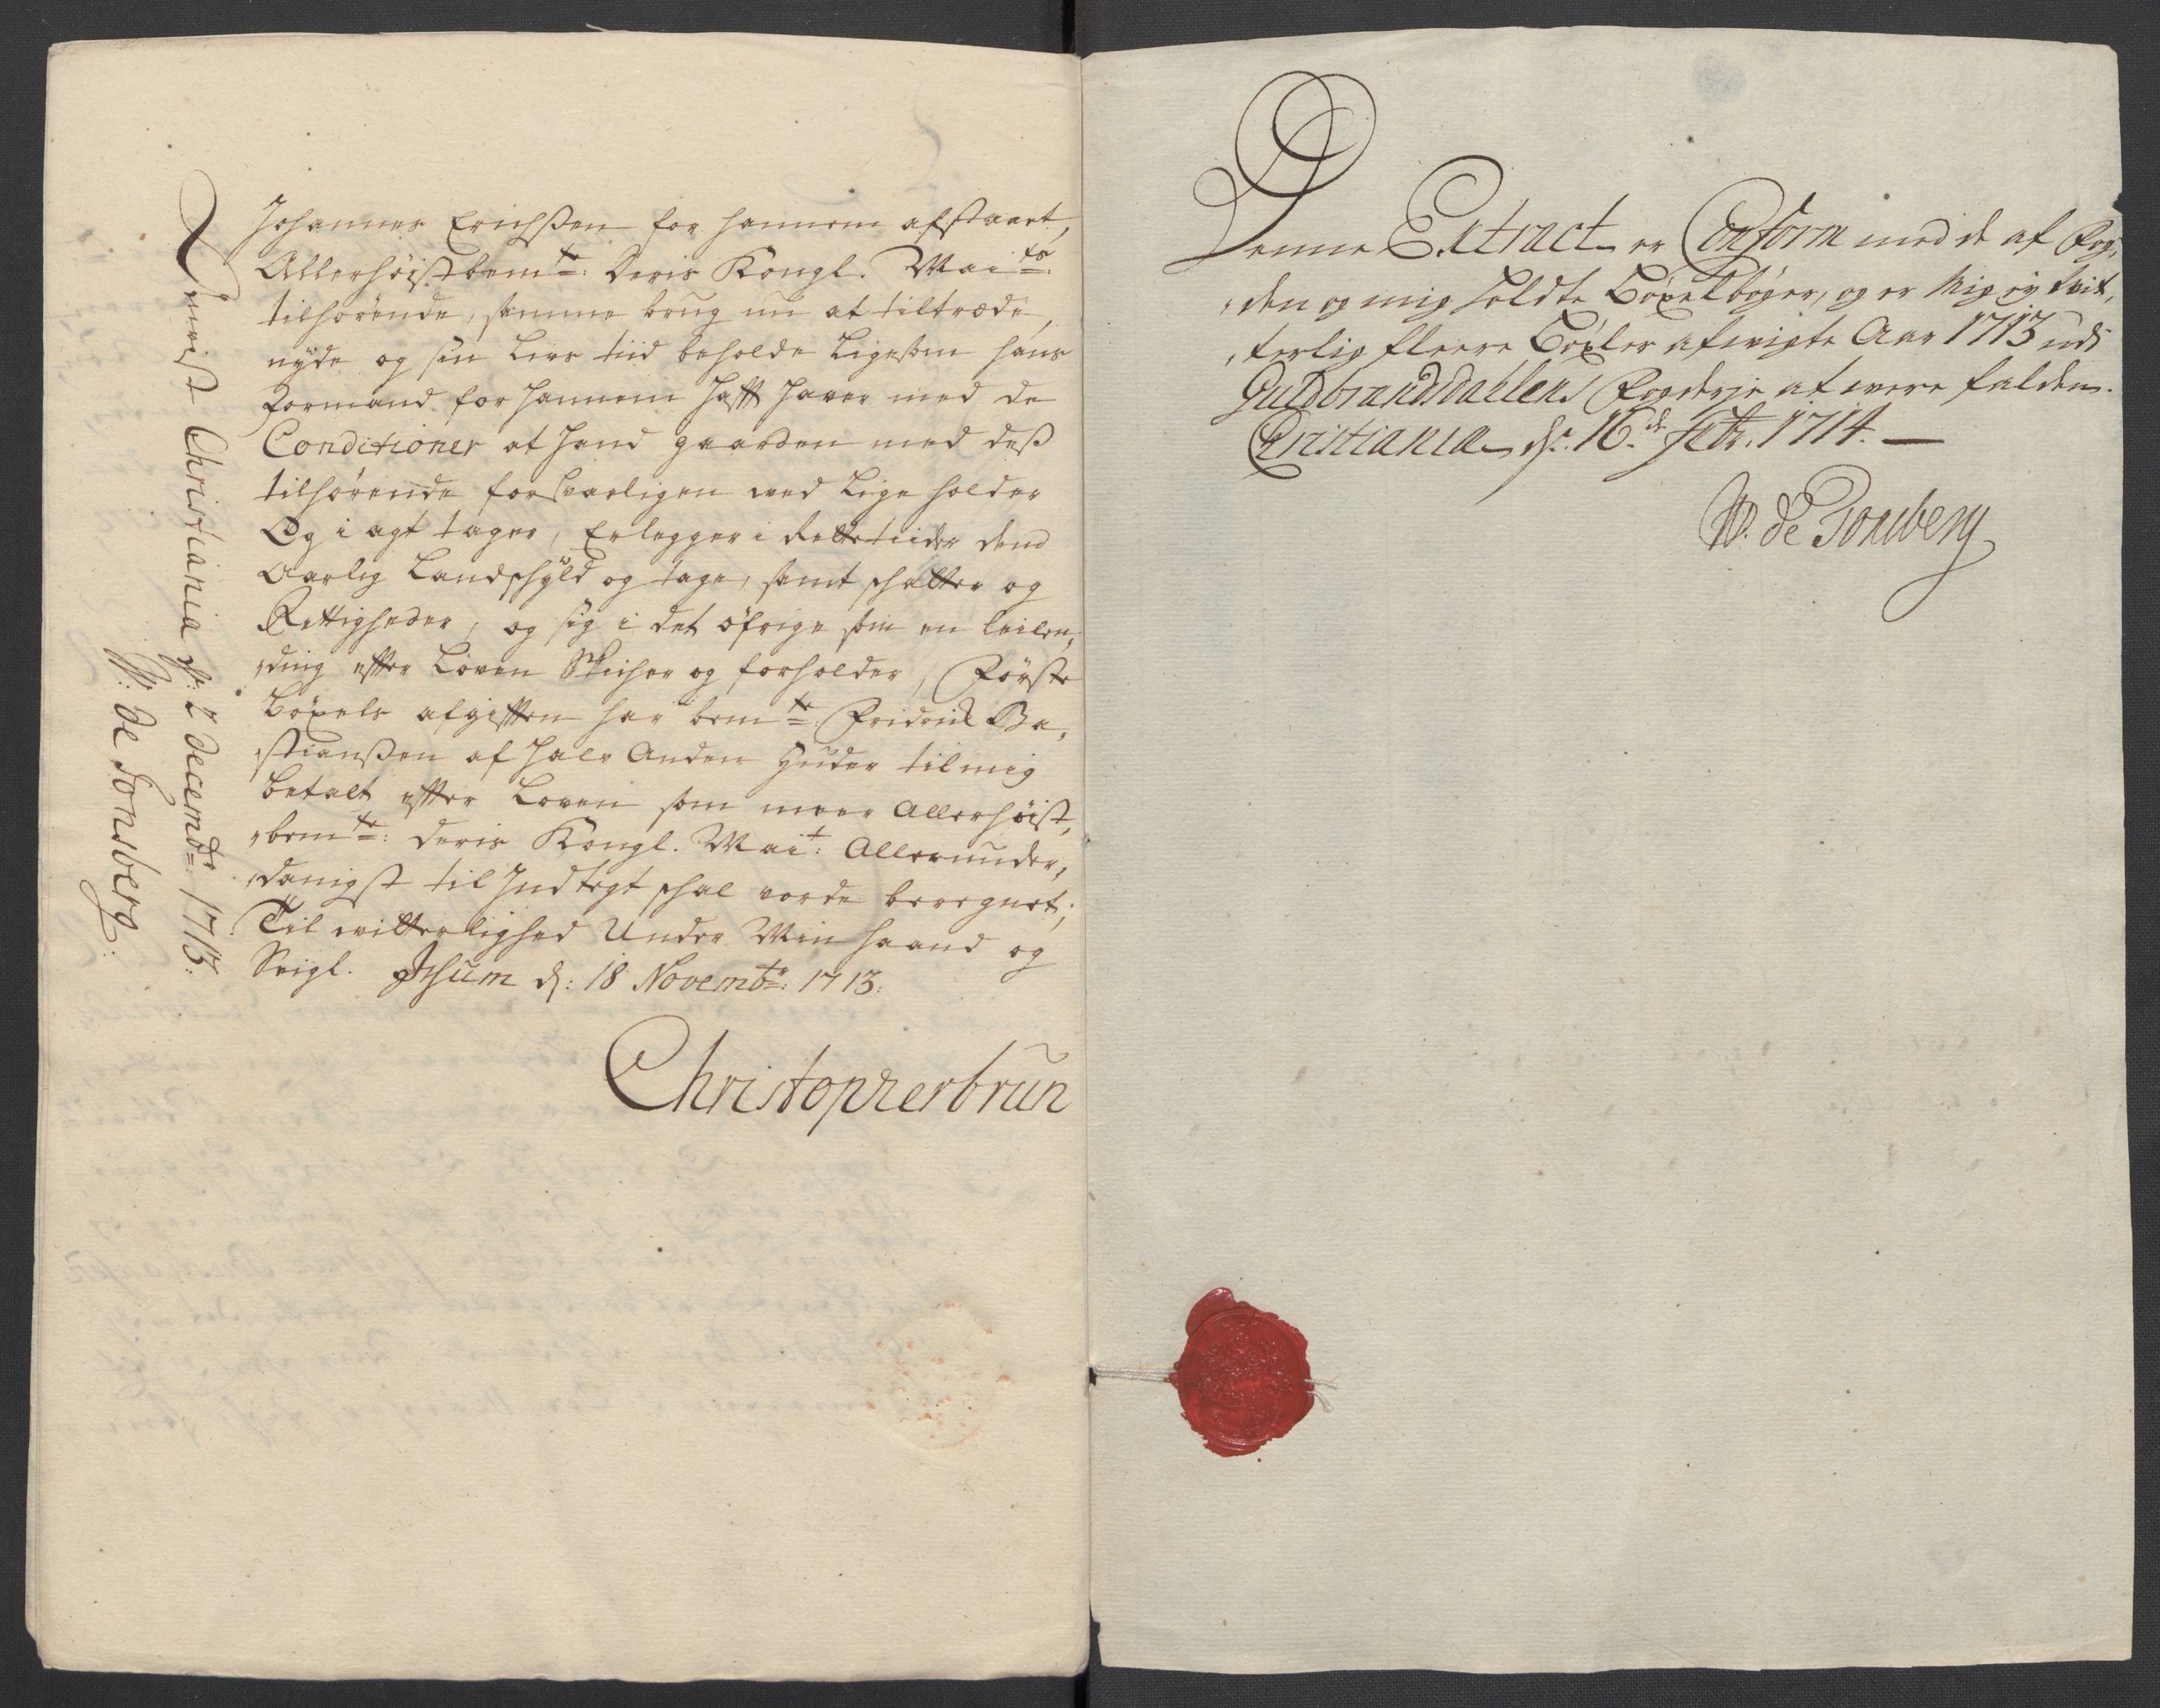 Johannes Erichßen for hannem afstaaet,
Allerhöistbemte: Deris Kongl. Maits:
tilhörende, samme brug nu at tiltræde,
nyde og sin Livs tiid beholde Ligesom hans
Formand for hannem hafft haver med de
Conditioner at hand gaarden med deß
tilhörende forsvarligen ved Lige holder
Og i agt tager, Erlegger i Rette tiider dend
Aarlig Landschyld og tage, samt schatter og
Rettigheder, og sig i det öfrige som en leilen,
,ding effter Loven Schicher og forholder, Förste
Böxels afgifften har bemte: Friderik Ba,
,stianßen af halv Anden Huder til mig
betalt effter Loven som meer Allerhöist,
,bemte: Deris Kongl. Mait: Allerunder,
,danigst til Indtegt schal vorde beregnet;
Til vitterlighed Under Min Haand og
Seigl. Isum d: 18 Novembr: 1713:
Christopher brun
Christiania d: 2 Decembr: 1713:
W: de Tonsberg:
Denne Extract er Conform med de af Fog,
,den og mig holdte Böxelbøger, og er Mig ej vit,
,terlig fleere Böxler afvigte Aar 1713 udi
Guldbrandsdahlens Fogderje at were falden.
Christiania d: 16de Febr. 1714.
W. de Tonsberg